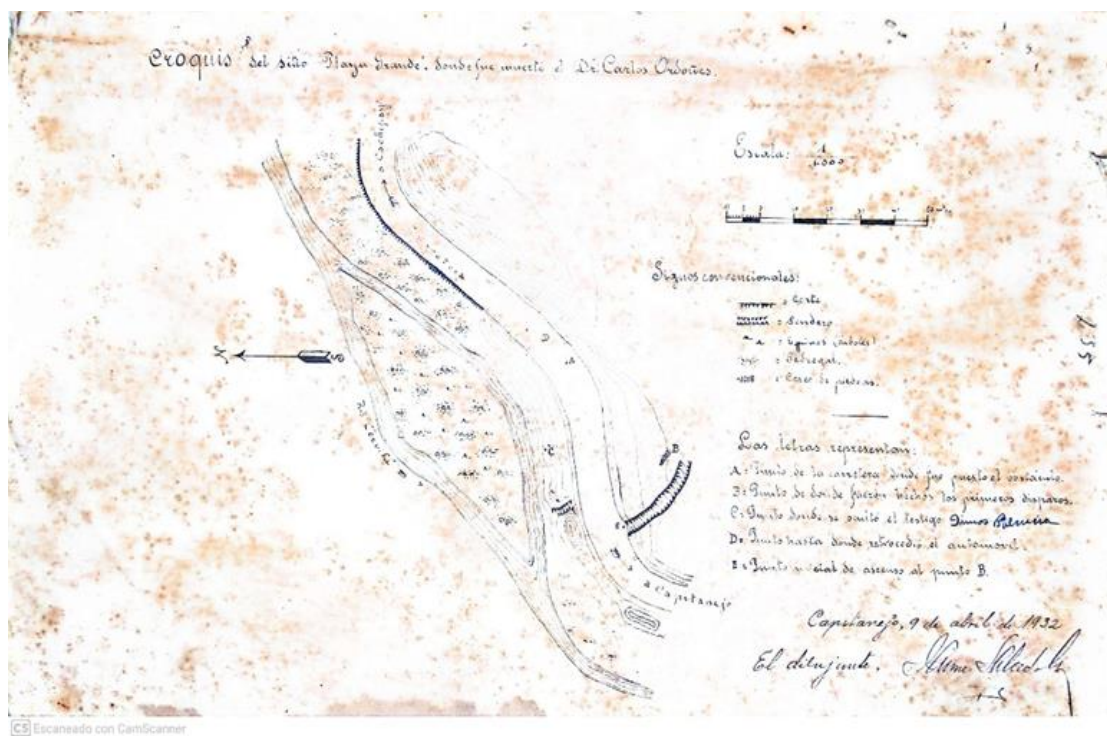 Croquis del sitio "Playa Grande", donde fue muerto el Dr. Carlos Ordoñes.
Escala: 1
1000
Signos convencionales:
= Corte
= Sendero
(árboles)
= Pedregal.
= Cerco de piedras.
Las letras representan:
A = Punto de la carretera donde fue puesto el obstáculo.
B = Punto de donde fueron hechos los primeros disparos.
C = Punto donde se botó el testigo
D = Punto hasta donde retrocedió el automóvil.
E = Punto inicial de ascenso al punto B.
N
S
A
B
C
D
E
a Capitanejo
Capitanejo, 9 de abril de 1932
El dibujante.
CS Escaneado con CamScanner